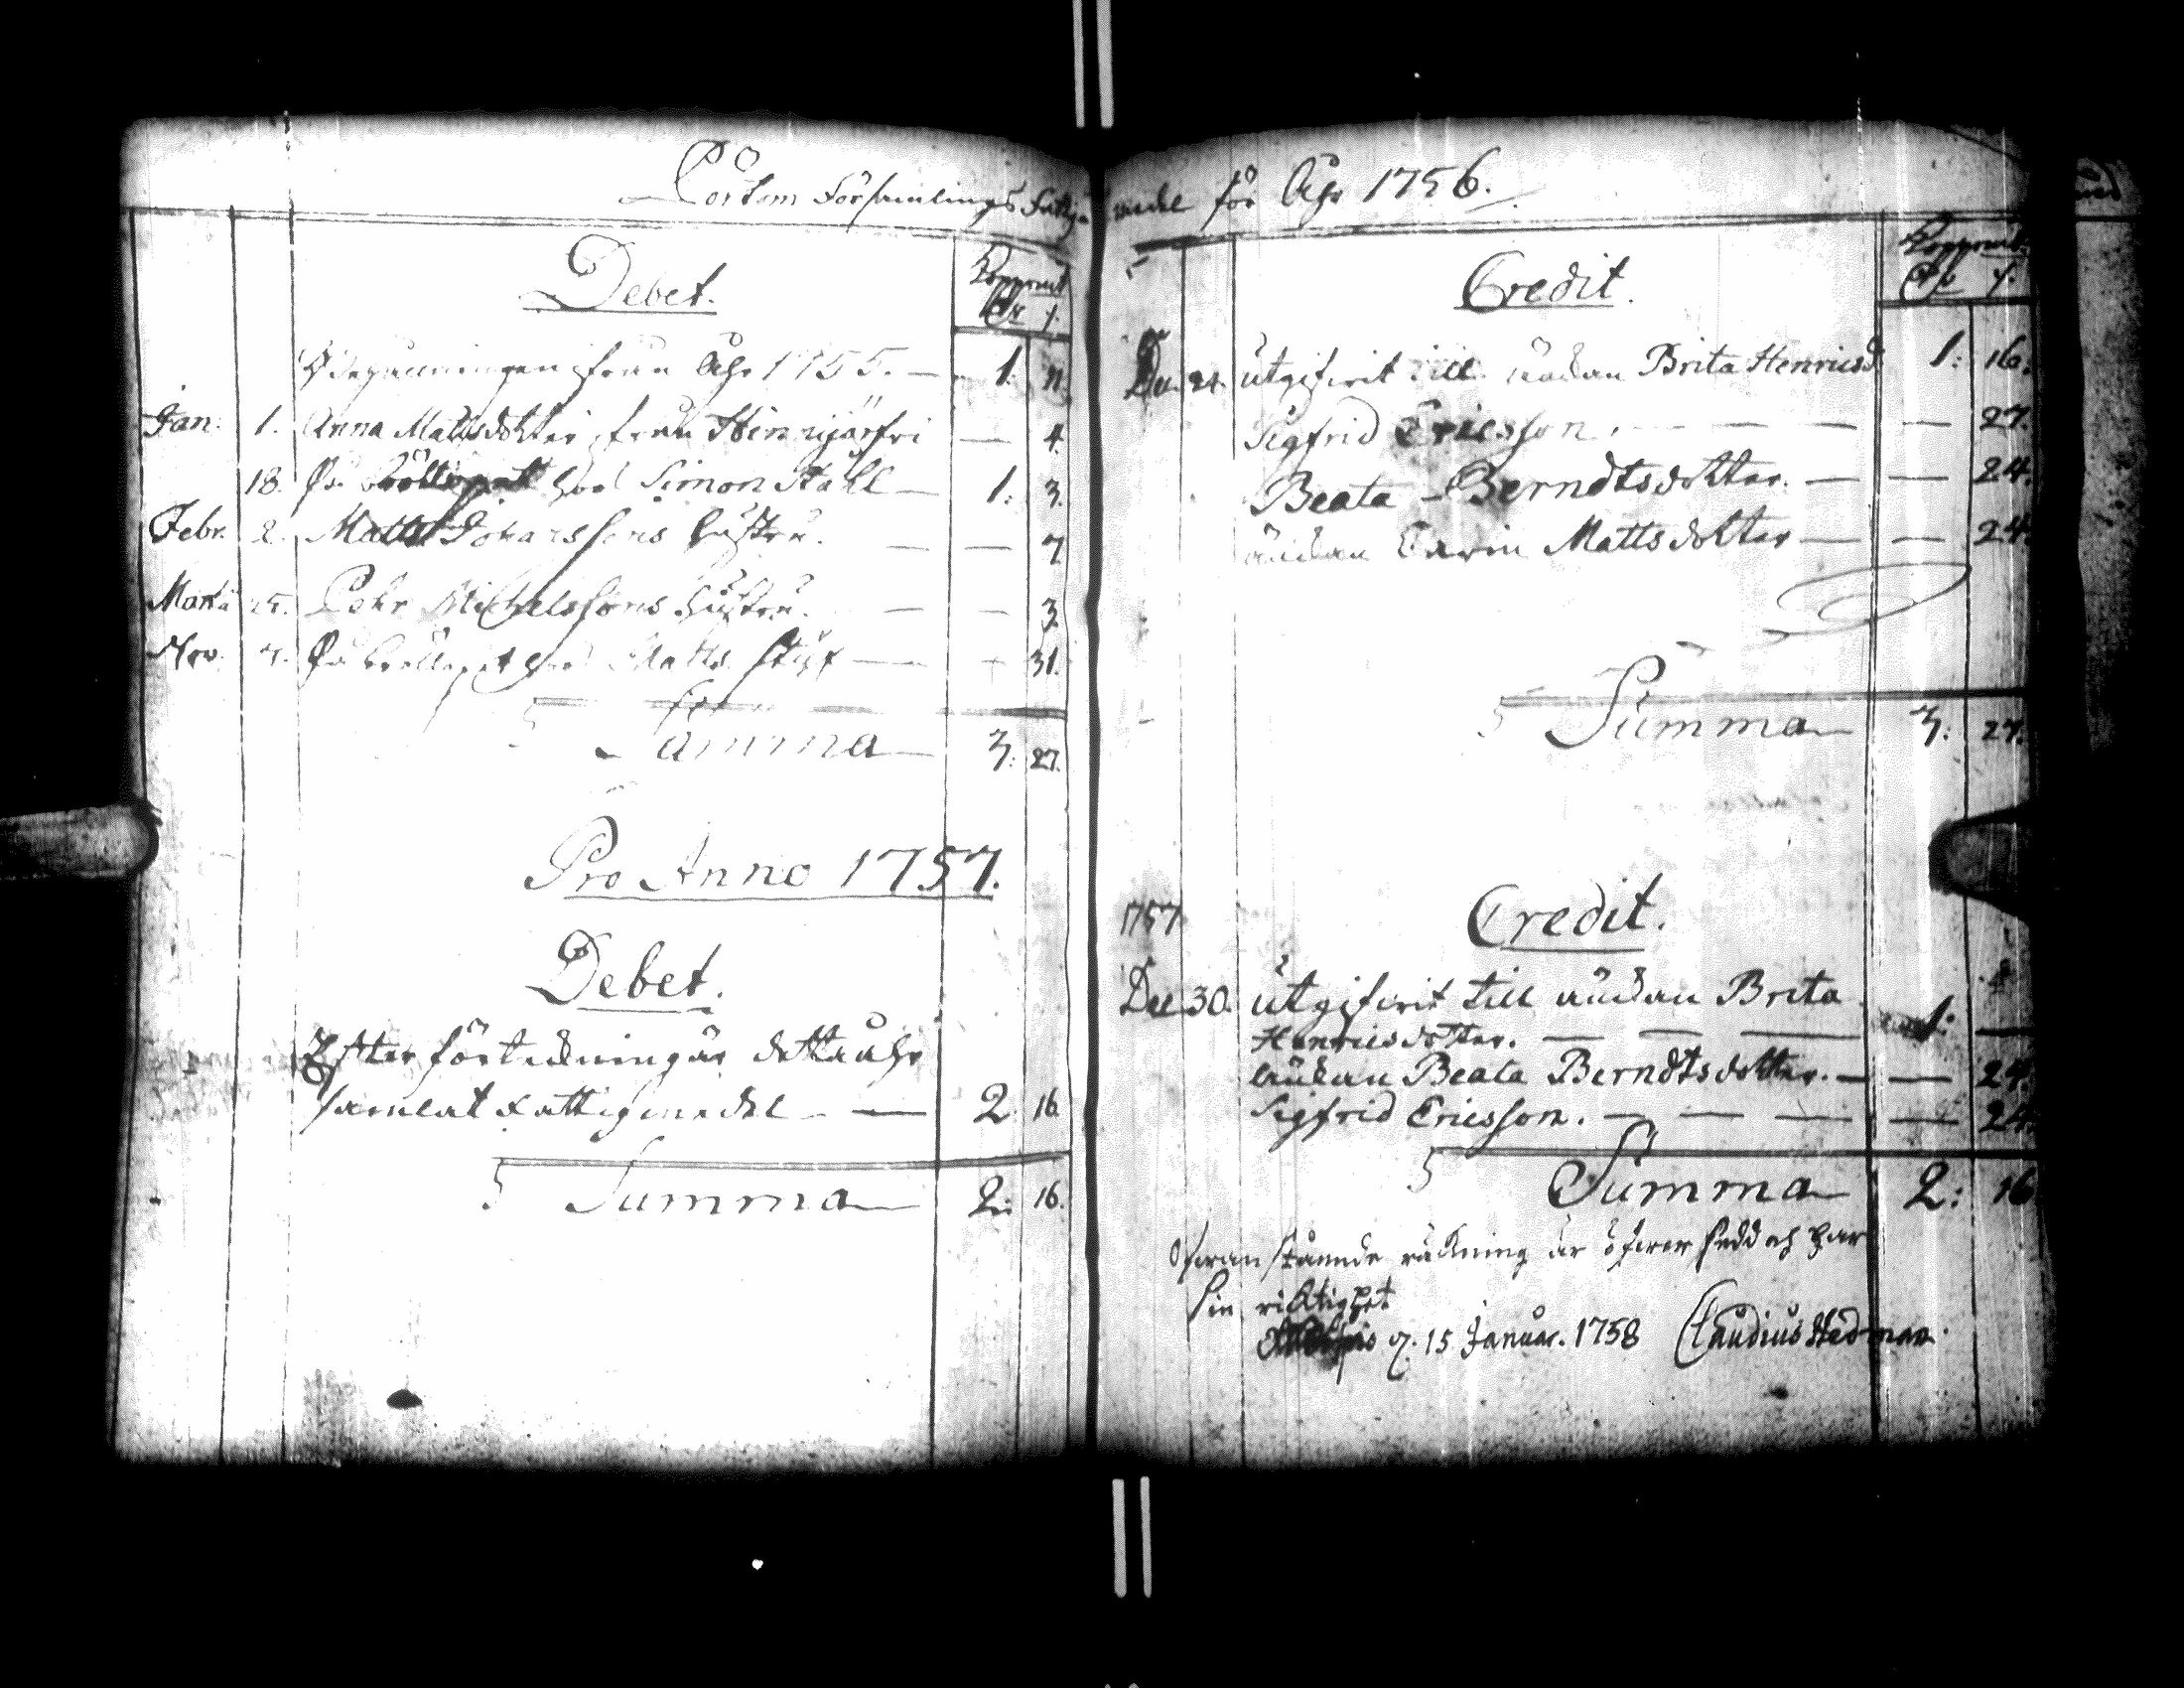 Pörtom Församlings Fattig medel för Åhr 1756.
Debet.
Kopparmt
Dlr /.
Behållningen från Åhr 1755. — 1. 11.
Jan: 1. Anna Mattsdotter från Hinnjärfvi — 4.
18. På bröllopet hos Simon Ståhl — 1: 3.
Febr. 2. Matts Johanssons hustru. — — 7
Martii 25. Pehr Michelssons hustru. — — 3
Nov. 7. På bröllopet hos Matts — 31.
Summa 3: 27.
Pro Anno 1757.
Debet.
Efter förteckning är detta åhr
samlat fattigmedel — 2. 16.
Summa 2: 16.
Credit.
Kopparmt
Dlr /.
Dec. 21. utgifvit till änkan Brita Henricsd. 1: 16.
Sigfrid Ericsson. — — 27.
Beata Berndtsdotter. — — 24.
änkan Carin Mattsdotter — — 24.
Summa 3: 27.
1757
Credit.
Dec 30. utgifvit till änkan Brita
Henricsdotter. — — — 1: —
änkan Beata Berndtsdotter. — — 24.
Sigfrid Ericsson. — — — 24.
Summa 2: 16
Ofvanstående räkning är öfversedd och har
sin riktighet
d. 15 Januar. 1758 Claudius Hedman.